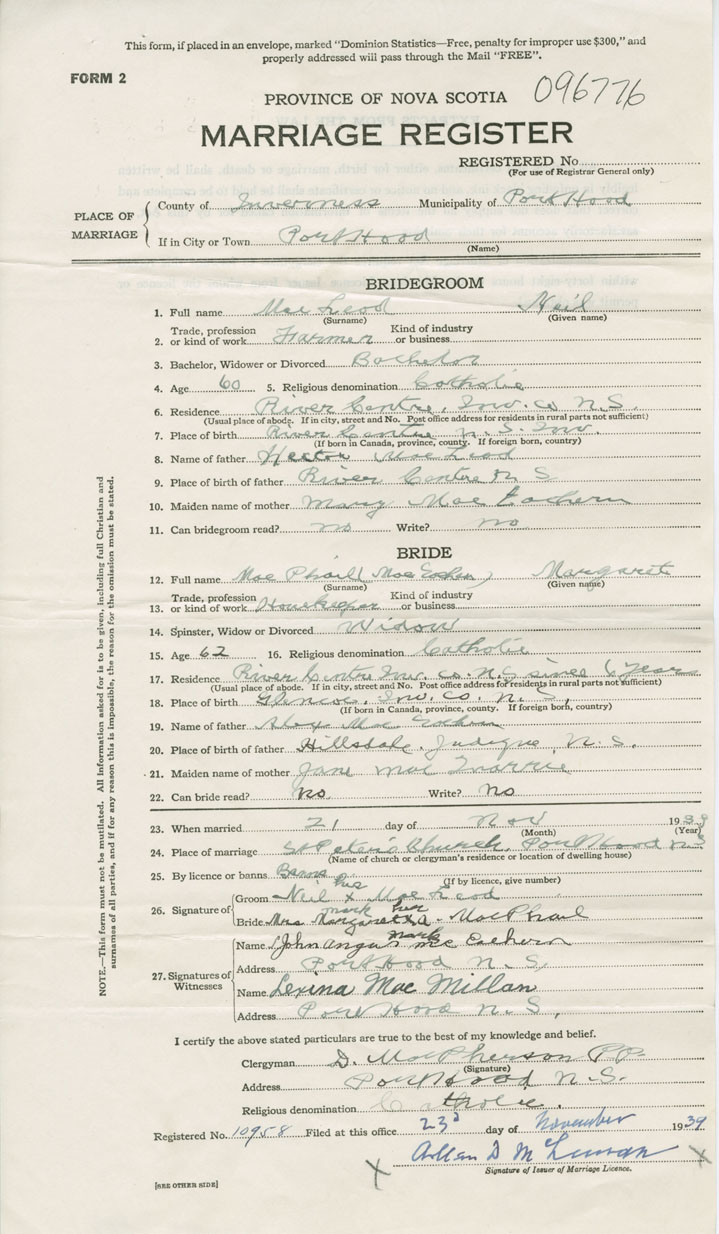 This form, if placed in an envelope, marked "Dominion Statistics—Free, penalty for improper use $300," and
properly addressed will pass through the Mail "FREE".
FORM 2
PROVINCE OF NOVA SCOTIA 096776
MARRIAGE REGISTER
REGISTERED No
(For use of Registrar General only)
PLACE OF MARRIAGE
County of Inverness Municipality of Port Hood
If in City or Town Port Hood
(Name)
BRIDEGROOM
1. Full name Mac Lead Neil
(Surname) (Given name)
2. Trade, profession or kind of work Farmer Kind of industry or business
3. Bachelor, Widower or Divorced Bachelor
4. Age 60 5. Religious denomination Catholic
6. Residence River Centre, Inv. Co N.S.
(Usual place of abode. If in city, street and No. Post office address for residents in rural parts not sufficient)
7. Place of birth River Centre N.S. Inv.
(If born in Canada, province, county. If foreign born, country)
8. Name of father Hector Mac Lead
9. Place of birth of father River Centre N S
10. Maiden name of mother Mary Mac Eachern
11. Can bridegroom read? no Write? no
BRIDE
12. Full name Mac Phail (Mac Eachen) Margaret
(Surname) (Given name)
13. Trade, profession or kind of work Housekeeper Kind of industry or business
14. Spinster, Widow or Divorced Widow
15. Age 62 16. Religious denomination Catholic
17. Residence River Centre Inv. Co. N.S. since 6 years
(Usual place of abode. If in city, street and No. Post office address for residents in rural parts not sufficient)
18. Place of birth Glencoe, Inv. Co, N.S,
(If born in Canada, province, county. If foreign born, country)
19. Name of father Alex Mac Eachen
20. Place of birth of father Hillsdale, Judique, N.S.
21. Maiden name of mother Jane Mac
22. Can bride read? No Write? No
23. When married 21 day of Nov 1939
(Month) (Year)
24. Place of marriage St Peter's Church, Port Hood N.S
(Name of church or clergyman's residence or location of dwelling house)
25. By licence or banns Banns (If by licence, give number)
26. Signature of
Groom Neil his x mark Mac Lead
Bride Mrs. Margaret her x mark A. MacPhail
27. Signatures of Witnesses
Name John Angus Mc Eachern
Address Port Hood N.S,
Name Lexina Mac Millan
Address Port Hood N.S,
I certify the above stated particulars are true to the best of my knowledge and belief.
Clergyman D. MacPherson P.P.
(Signature)
Address Port Hood N.S.
Religious denomination Catholic.
Registered No. 10958 Filed at this office 23d day of November 1939
Allan D
Signature of Issuer of Marriage Licence.
[SEE OTHER SIDE]
NOTE.—This form must not be mutilated. All Information asked for is to be given, including full Christian and
surnames of all parties, and if for any reason this is impossible, the reason for the omission must be stated.